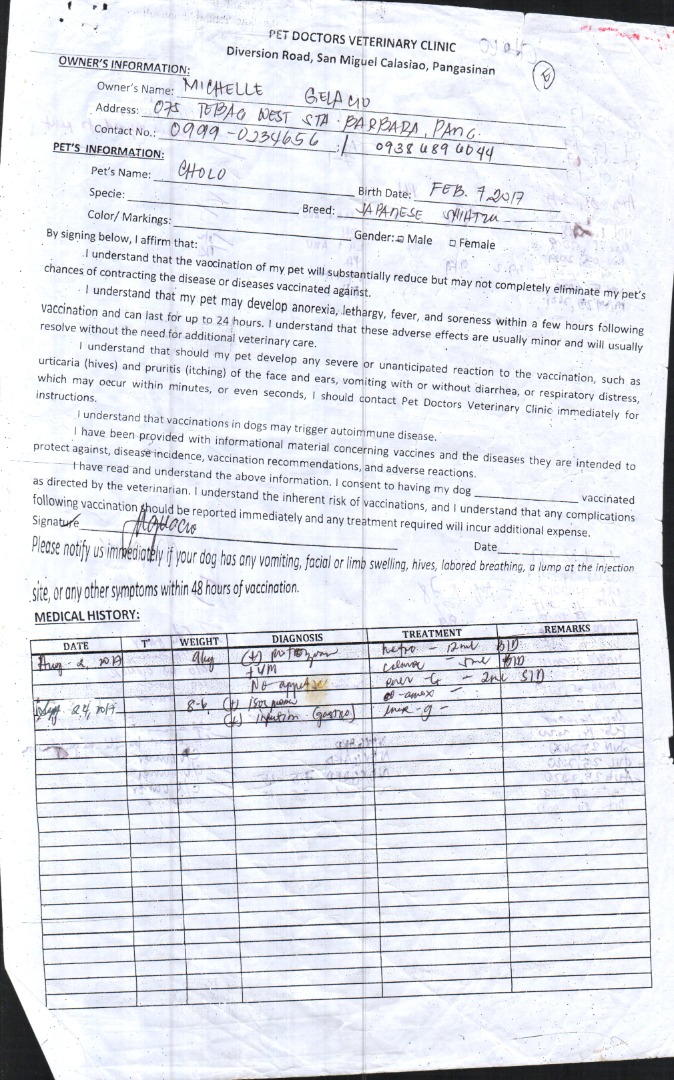 PET DOCTORS VETERINARY CLINIC
Diversion Road, San Miguel Calasiao, Pangasinan
OWNER'S INFORMATION:
Owner's Name: MICHELLE GELACIO
Address: 075 TEBAG WEST STA. BARBARA, PANG.
Contact No.: 0999-0234656 / 0938 689 6044
PET'S INFORMATION:
Pet's Name: CHOLO
Birth Date: FEB. 7, 2017
Specie:
Breed: JAPANESE SHIHTZU
Color/ Markings:
Gender: □ Male □ Female
By signing below, I affirm that:
I understand that the vaccination of my pet will substantially reduce but may not completely eliminate my pet's
chances of contracting the disease or diseases vaccinated against.
I understand that my pet may develop anorexia, lethargy, fever, and soreness within a few hours following
vaccination and can last for up to 24 hours. I understand that these adverse effects are usually minor and will usually
resolve without the need for additional veterinary care.
I understand that should my pet develop any severe or unanticipated reaction to the vaccination, such as
urticaria (hives) and pruritis (itching) of the face and ears, vomiting with or without diarrhea, or respiratory distress,
which may occur within minutes, or even seconds, I should contact Pet Doctors Veterinary Clinic immediately for
instructions.
I understand that vaccinations in dogs may trigger autoimmune disease.
I have been provided with informational material concerning vaccines and the diseases they are intended to
protect against, disease incidence, vaccination recommendations, and adverse reactions.
I have read and understand the above information. I consent to having my dog ____________ vaccinated
as directed by the veterinarian. I understand the inherent risk of vaccinations, and I understand that any complications
following vaccination should be reported immediately and any treatment required will incur additional expense.
Signature
Date
Please notify us immediately if your dog has any vomiting, facial or limb swelling, hives, labored breathing, a lump at the injection
site, or any other symptoms within 48 hours of vaccination.
MEDICAL HISTORY:
DATE T° WEIGHT DIAGNOSIS TREATMENT REMARKS
Aug. 2, 2017 9kg (+) BID
BID
No SID
24, 2017 8.6 (+)
(+) infection (gastro)